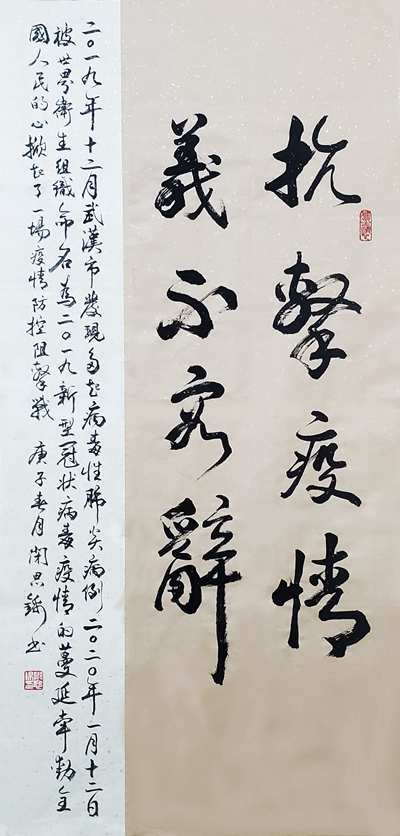 抗擊疫情
義不容辭
二〇一九年十二月武漢市發現多起病毒性肺炎病例二〇二〇年一月十二日
被世界衛生組織命名為二〇一九新型冠狀病毒疫情的蔓延牽動全
國人民的心掀起了一場疫情防控阻擊戰 庚子春月 思 書